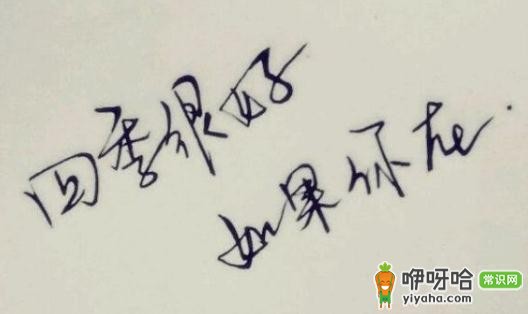 四季很好
如果你在.
咿呀哈 常识网
yiyaha.com